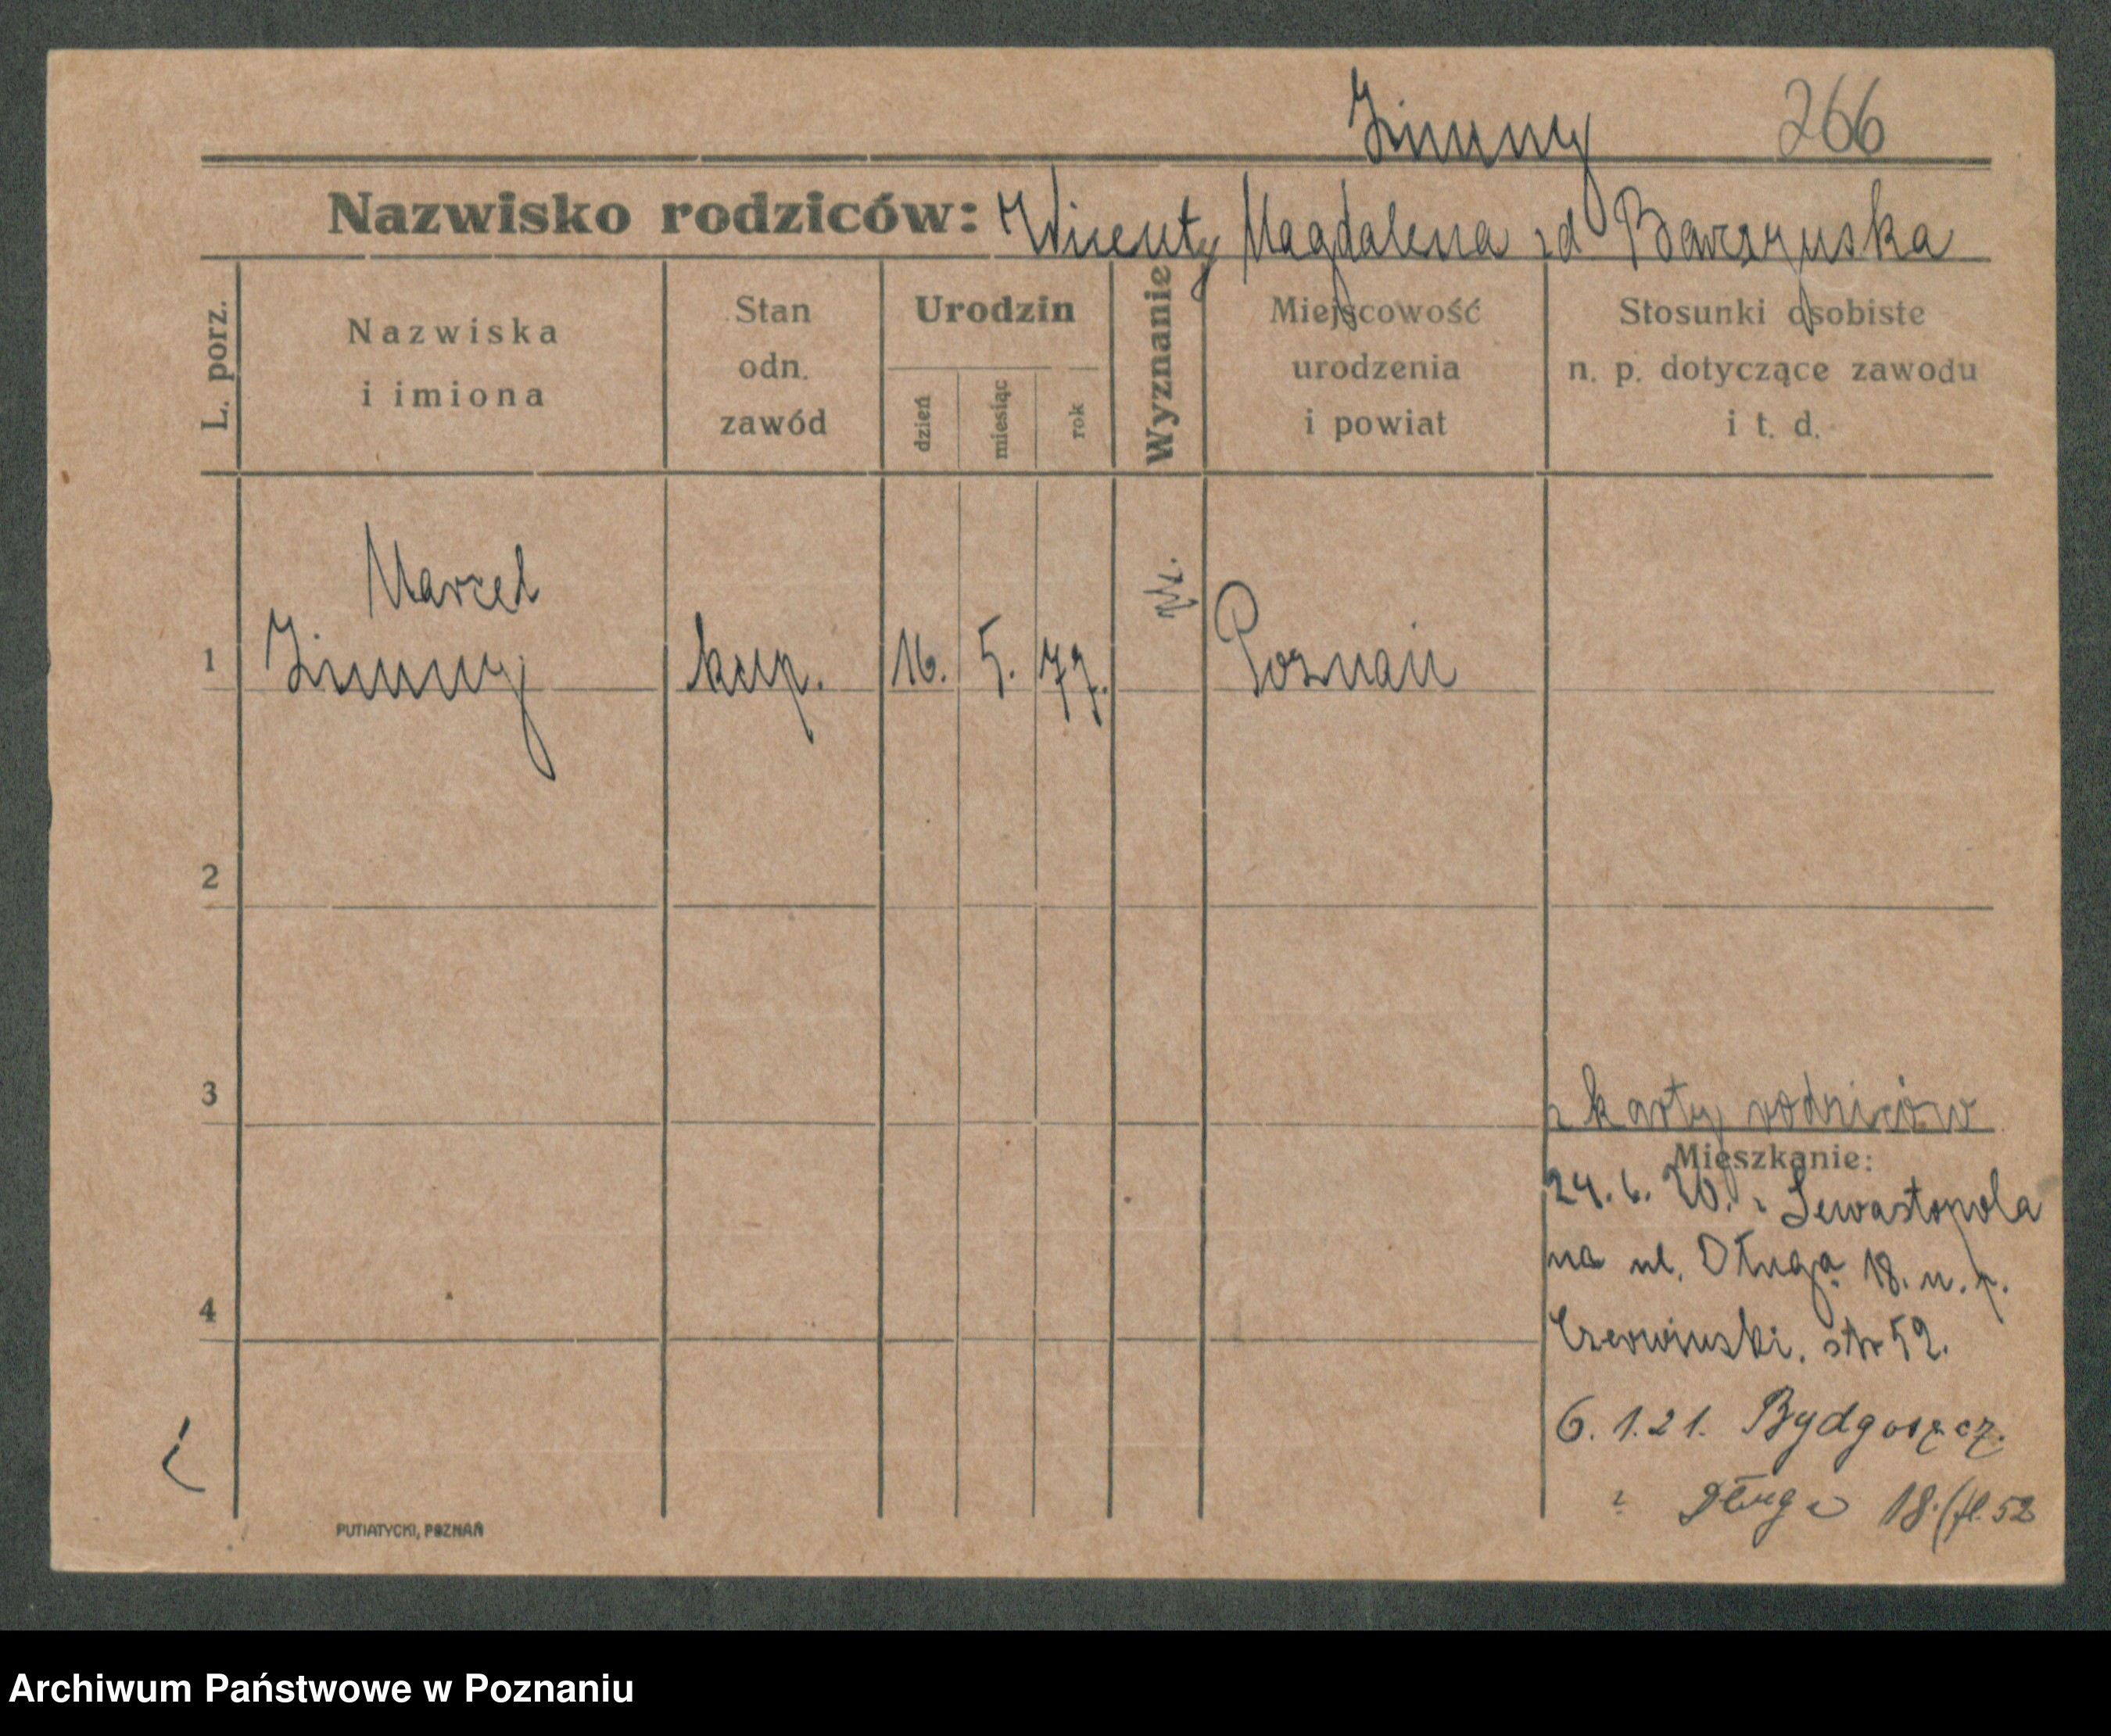 Zimny 266
Nazwisko rodziców: Wicenty Magdalena zd Barczyńska
L. porz.
Nazwiska
i imiona
Stan
odn.
zawód
Urodzin
dzień
miesiąc
rok
Wyznanie
Miejscowość
urodzenia
i powiat
Stosunki osobiste
n. p. dotyczące zawodu
i t. d.
Marcel
1 Zimny kup. 16. 5. 77. Poznań
2
3
z karty rodziców
Mieszkanie:
24. 6. 20. z Sewastopola
na ul. Długa 18. u. p.
4
Czerwiński. str 52.
6. 1. 21. Bydgoszcz.
z Długa 18. (fl. 52
PUTIATYCKI, POZNAŃ
Archiwum Państwowe w Poznaniu